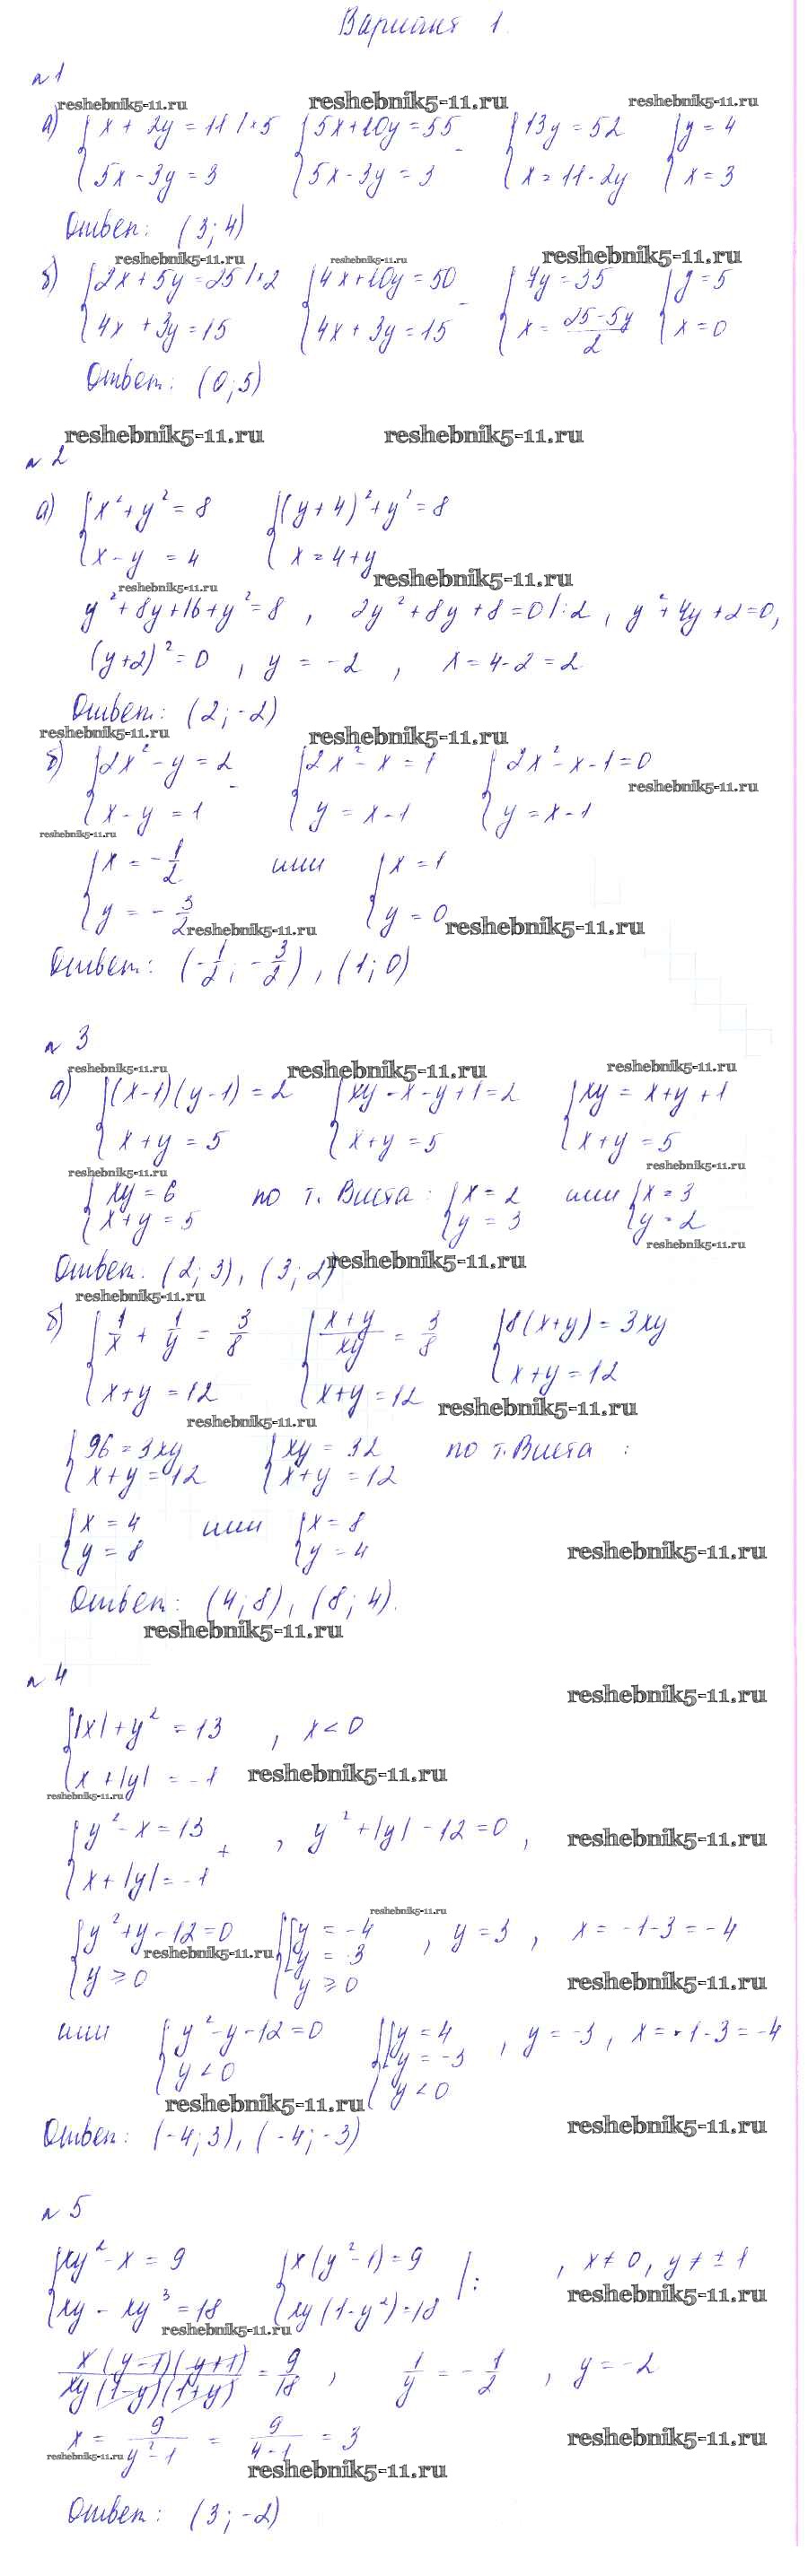 Вариант 1.
№1
reshebnik5-11.ru reshebnik5-11.ru reshebnik5-11.ru
а) { x + 2y = 11 |×5 { 5x+10y = 55 - { 13y = 52 { y = 4
5x - 3y = 3 5x - 3y = 3 x = 11 - 2y x = 3
Ответ: (3; 4)
reshebnik5-11.ru reshebnik5-11.ru reshebnik5-11.ru
б) { 2x + 5y = 25 |×2 { 4x+10y = 50 - { 7y = 35 { y = 5
4x + 3y = 15 4x + 3y = 15 x = (25-5y)/2 x = 0
Ответ: (0; 5)
reshebnik5-11.ru reshebnik5-11.ru
№2
а) { x² + y² = 8 { (y+4)² + y² = 8
x - y = 4 x = 4 + y
reshebnik5-11.ru
reshebnik5-11.ru
y² + 8y + 16 + y² = 8 , 2y² + 8y + 8 = 0 |:2 , y² + 4y + 2 = 0,
(y+2)² = 0 , y = -2 , x = 4-2 = 2
Ответ: (2; -2)
reshebnik5-11.ru reshebnik5-11.ru
б) { 2x² - y = 2 - { 2x² - x = 1 { 2x² - x - 1 = 0
reshebnik5-11.ru
x - y = 1 y = x - 1 y = x - 1
reshebnik5-11.ru
{ x = -1/2 или { x = 1
y = -3/2 y = 0
reshebnik5-11.ru reshebnik5-11.ru
Ответ: (-1/2; -3/2), (1; 0)
№3
reshebnik5-11.ru reshebnik5-11.ru reshebnik5-11.ru
а) { (x-1)(y-1) = 2 { xy - x - y + 1 = 2 { xy = x + y + 1
x + y = 5 x + y = 5 x + y = 5
reshebnik5-11.ru reshebnik5-11.ru
{ xy = 6 по т. Виета: { x = 2 или { x = 3
x + y = 5 y = 3 y = 2
reshebnik5-11.ru
Ответ. (2; 3), (3; 2)
reshebnik5-11.ru
reshebnik5-11.ru
б) { 1/x + 1/y = 3/8 { (x+y)/xy = 3/8 { 8(x+y) = 3xy
x + y = 12 x + y = 12 x + y = 12
reshebnik5-11.ru reshebnik5-11.ru
{ 96 = 3xy { xy = 32 по т. Виета :
x + y = 12 x + y = 12
{ x = 4 или { x = 8
y = 8 y = 4
reshebnik5-11.ru
Ответ: (4; 8), (8; 4).
reshebnik5-11.ru
№4
reshebnik5-11.ru
{ |x| + y² = 13 , x < 0
x + |y| = -1
reshebnik5-11.ru
reshebnik5-11.ru
{ y² - x = 13 + , y² + |y| - 12 = 0 ,
reshebnik5-11.ru
x + |y| = -1
reshebnik5-11.ru
{ y² + y - 12 = 0 { [ y = -4 , y = 3 , x = -1-3 = -4
reshebnik5-11.ru y = 3
y ≥ 0 y ≥ 0
reshebnik5-11.ru
или { y² - y - 12 = 0 { [ y = 4 , y = -3 , x = -1-3 = -4
y = -3
y < 0 y < 0
reshebnik5-11.ru
Ответ: (-4; 3), (-4; -3)
reshebnik5-11.ru
№5
{ xy² - x = 9 { x(y²-1) = 9 |: , x ≠ 0, y ≠ ±1
reshebnik5-11.ru
xy - xy³ = 18 xy(1-y²) = 18
reshebnik5-11.ru
x(y-1)(y+1)/xy(1-y)(1+y) = 9/18 , 1/y = -1/2 , y = -2.
x = 9/(y²-1) = 9/(4-1) = 3
reshebnik5-11.ru
reshebnik5-11.ru
reshebnik5-11.ru
Ответ: (3; -2)